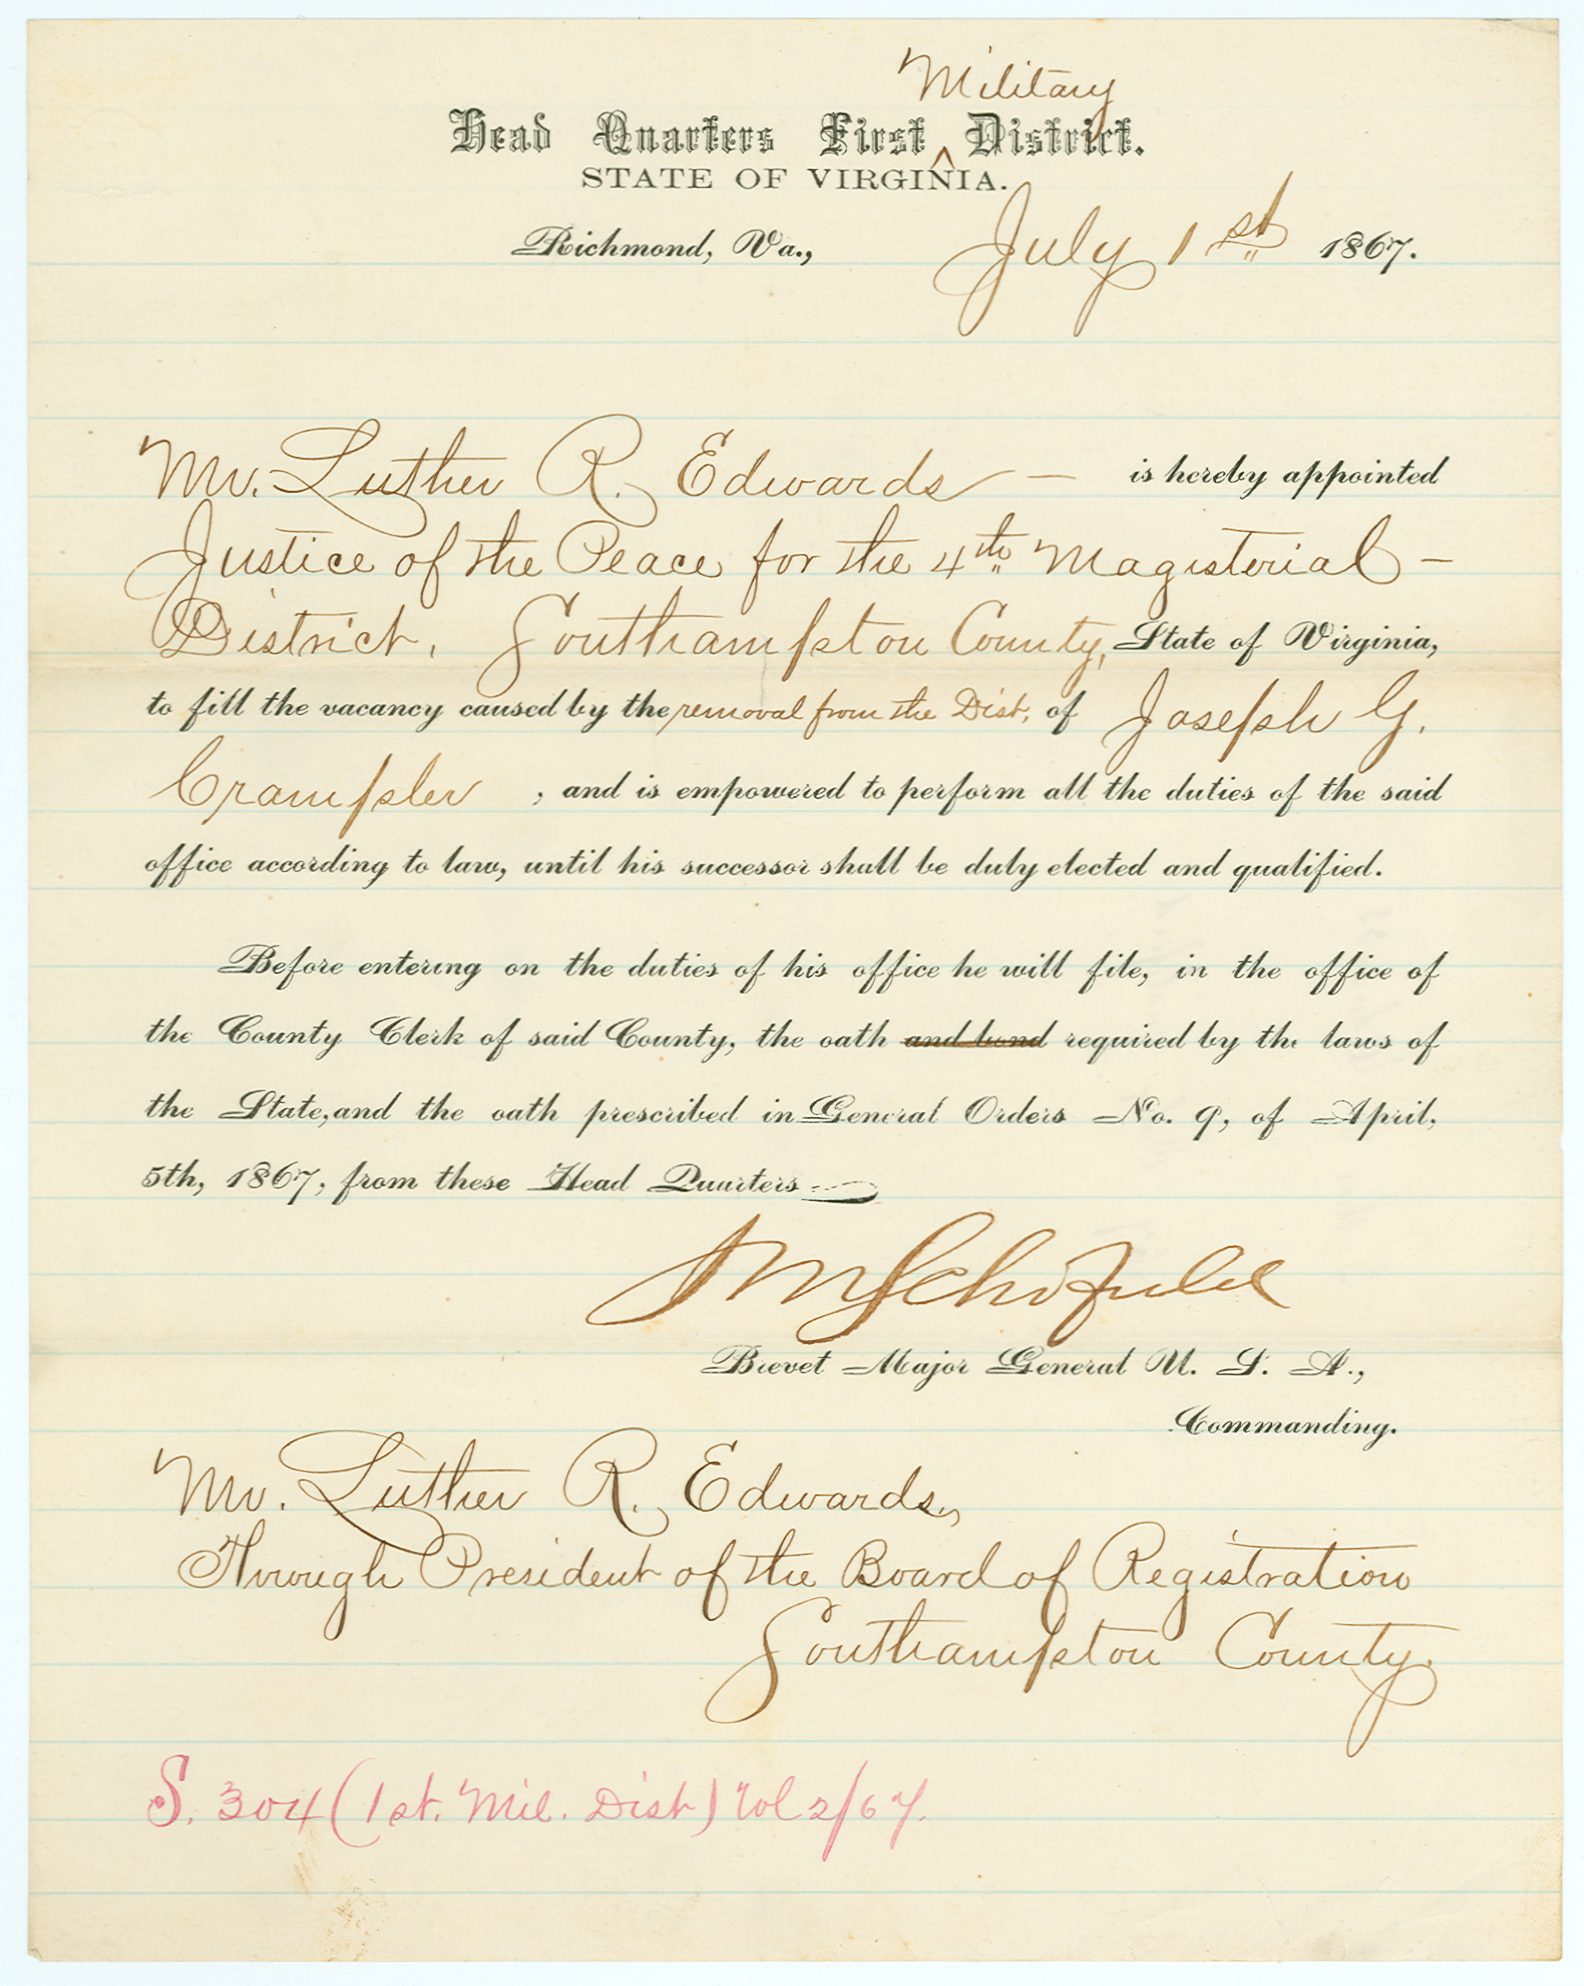 Military
Head Quarters First ^ District.
STATE OF VIRGINIA.
Richmond, Va., July 1st 1867.
Mr. Luther R. Edwards — is hereby appointed
Justice of the Peace for the 4th Magisterial —
District, Southampton County, State of Virginia,
to fill the vacancy caused by the removal from the Dist. of Joseph G.
Crampler , and is empowered to perform all the duties of the said
office according to law, until his successor shall be duly elected and qualified.
Before entering on the duties of his office he will file, in the office of
the County Clerk of said County, the oath and bond required by the laws of
the State, and the oath prescribed in General Orders No. 9, of April,
5th, 1867, from these Head Quarters
JM Schofield
Brevet Major General U. S. A.,
Commanding.
Mr. Luther R. Edwards,
Through President of the Board of Registration
Southampton County.
S. 304 (1st. Mil. Dist) Vol 2/67.